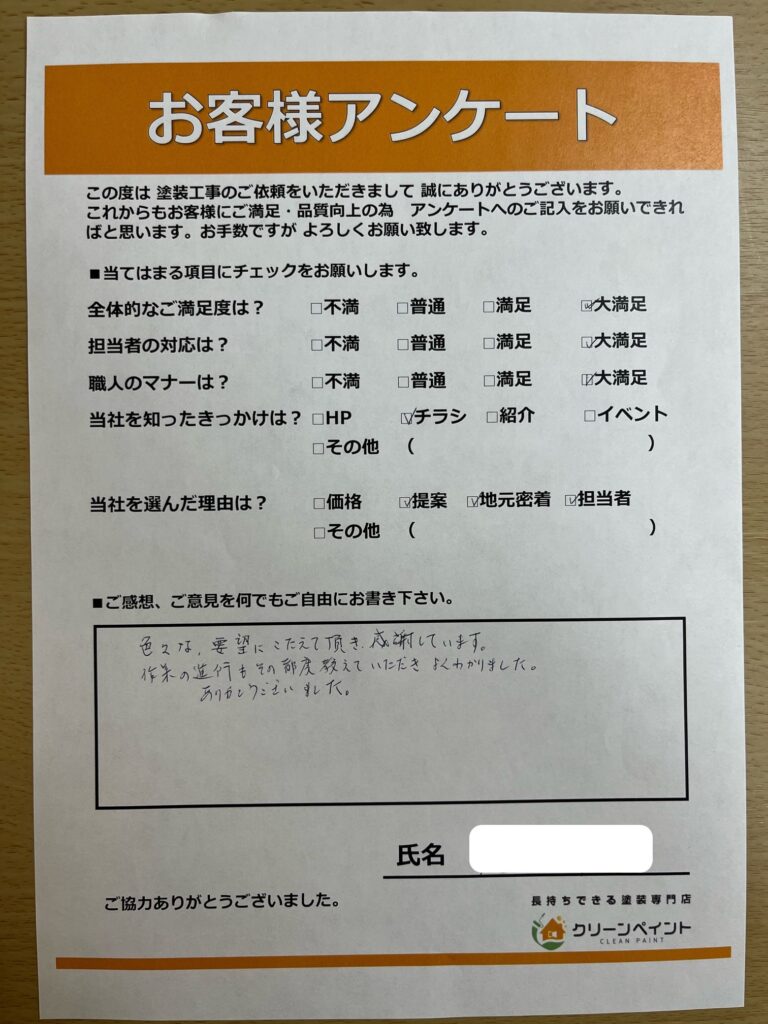 お客様アンケート
この度は 塗装工事のご依頼をいただきまして 誠にありがとうございます。
これからもお客様にご満足・品質向上の為　アンケートへのご記入をお願いできれ
ばと思います。お手数ですが よろしくお願い致します。
■当てはまる項目にチェックをお願いします。
全体的なご満足度は？ □不満 □普通 □満足 ☑大満足
担当者の対応は？ □不満 □普通 □満足 ☑大満足
職人のマナーは？ □不満 □普通 □満足 ☑大満足
当社を知ったきっかけは？ □HP ☑チラシ □紹介 □イベント
□その他 （ ）
当社を選んだ理由は？ □価格 ☑提案 ☑地元密着 ☑担当者
□その他 （ ）
■ご感想、ご意見を何でもご自由にお書き下さい。
色々な、要望にこたえて頂き、感謝しています。
作業の進行もその都度教えていただき よくわかりました。
ありがとうございました。
氏名
ご協力ありがとうございました。
長持ちできる塗装専門店
クリーンペイント
CLEAN PAINT